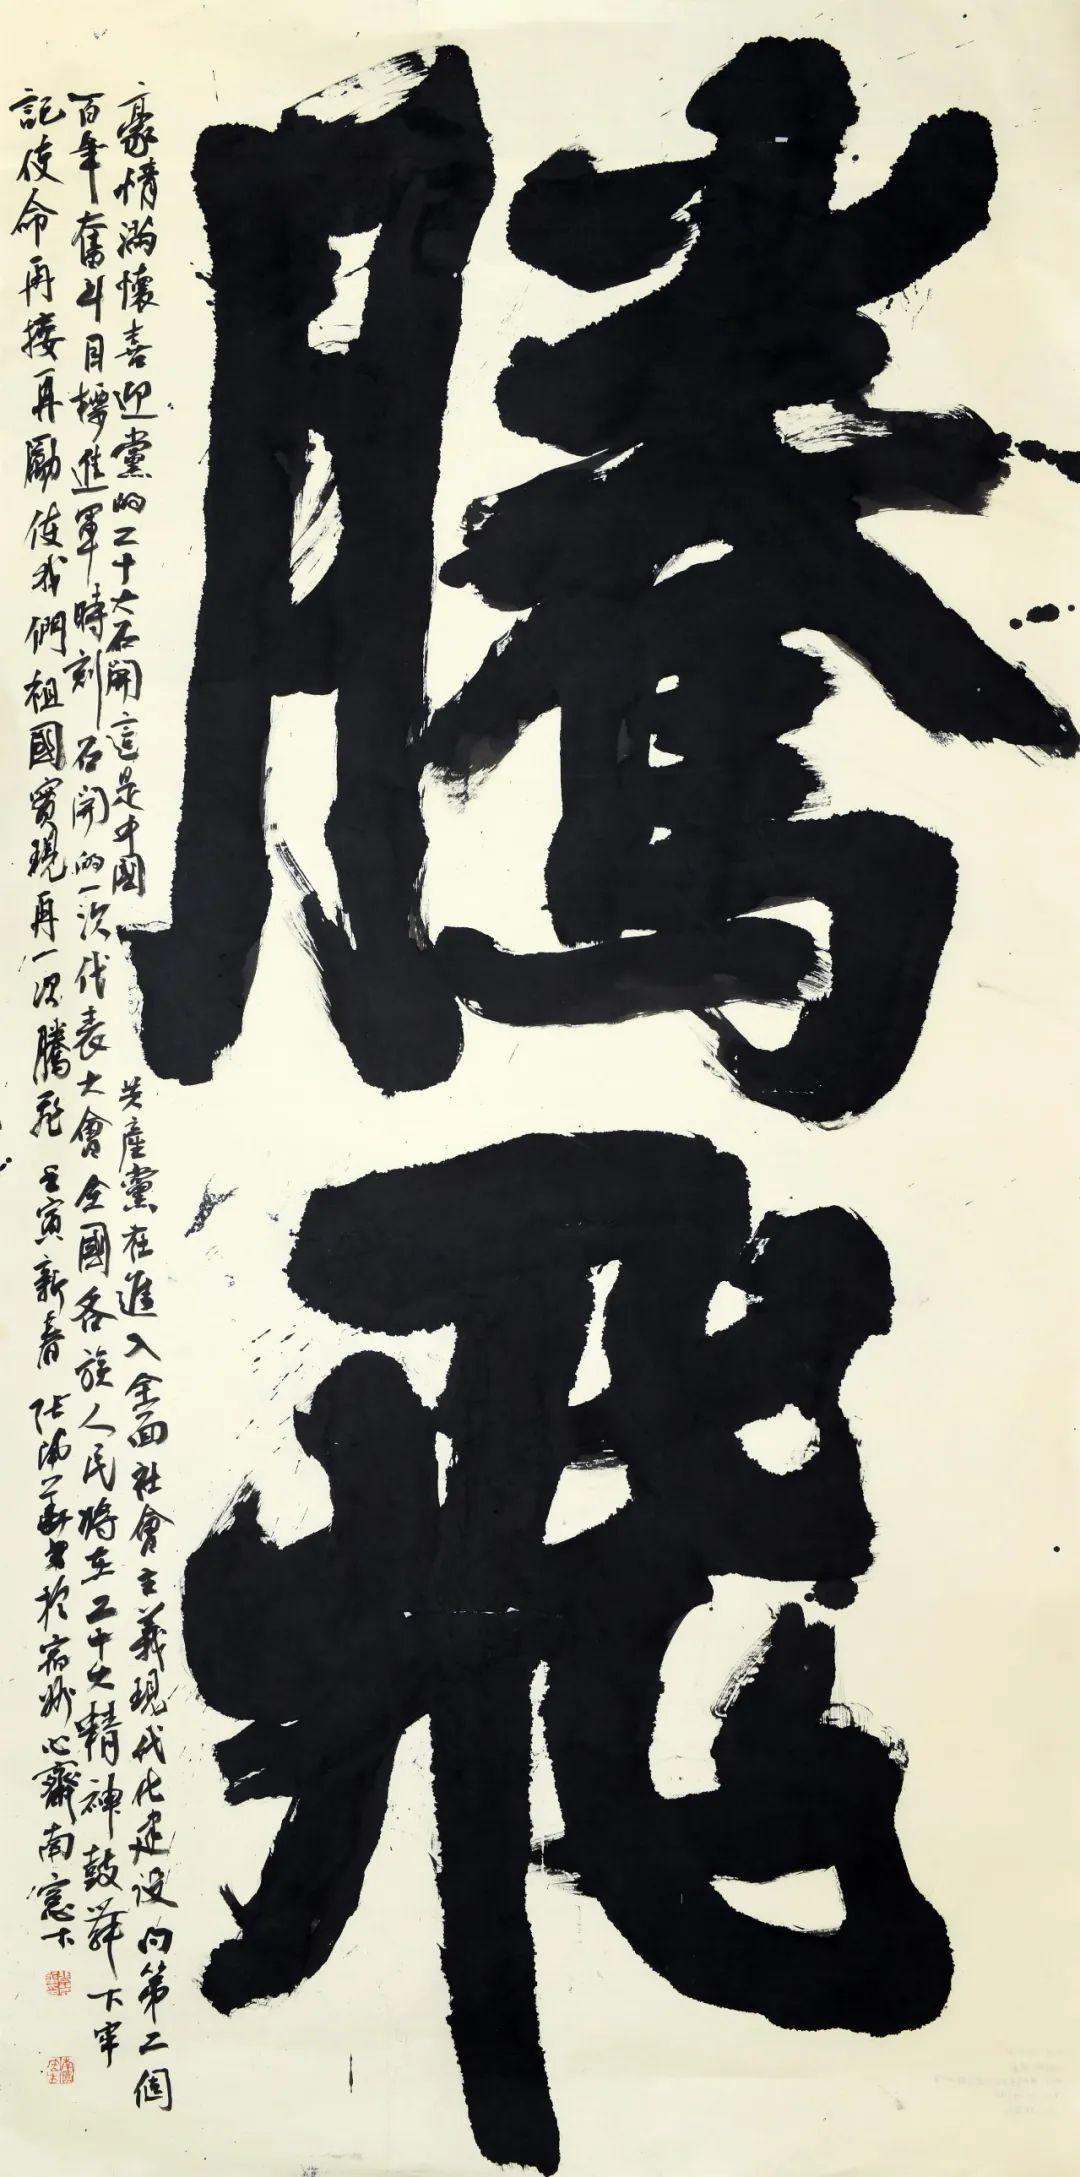 騰飛
豪情滿懷喜迎黨的二十大召開這是中國共產黨在進入全面社會主義現代化建設向第二個
百年奮斗目標進軍時刻召開的一次代表大會全國各族人民將在二十大精神鼓舞下牢
記使命再接再勵使我們祖國實現再一次騰飛壬寅新春張華書於宿州心齋南窓下